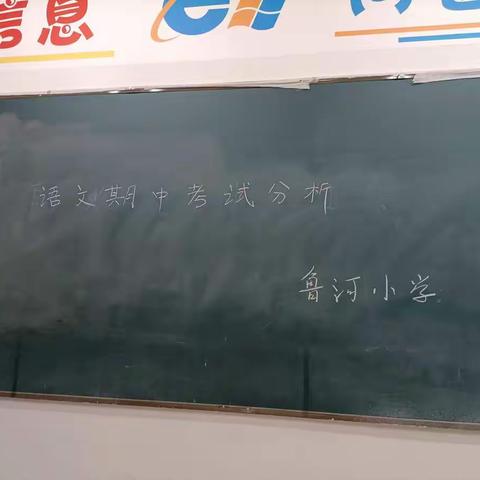 信息
语文期中考试分析
鲁河小学